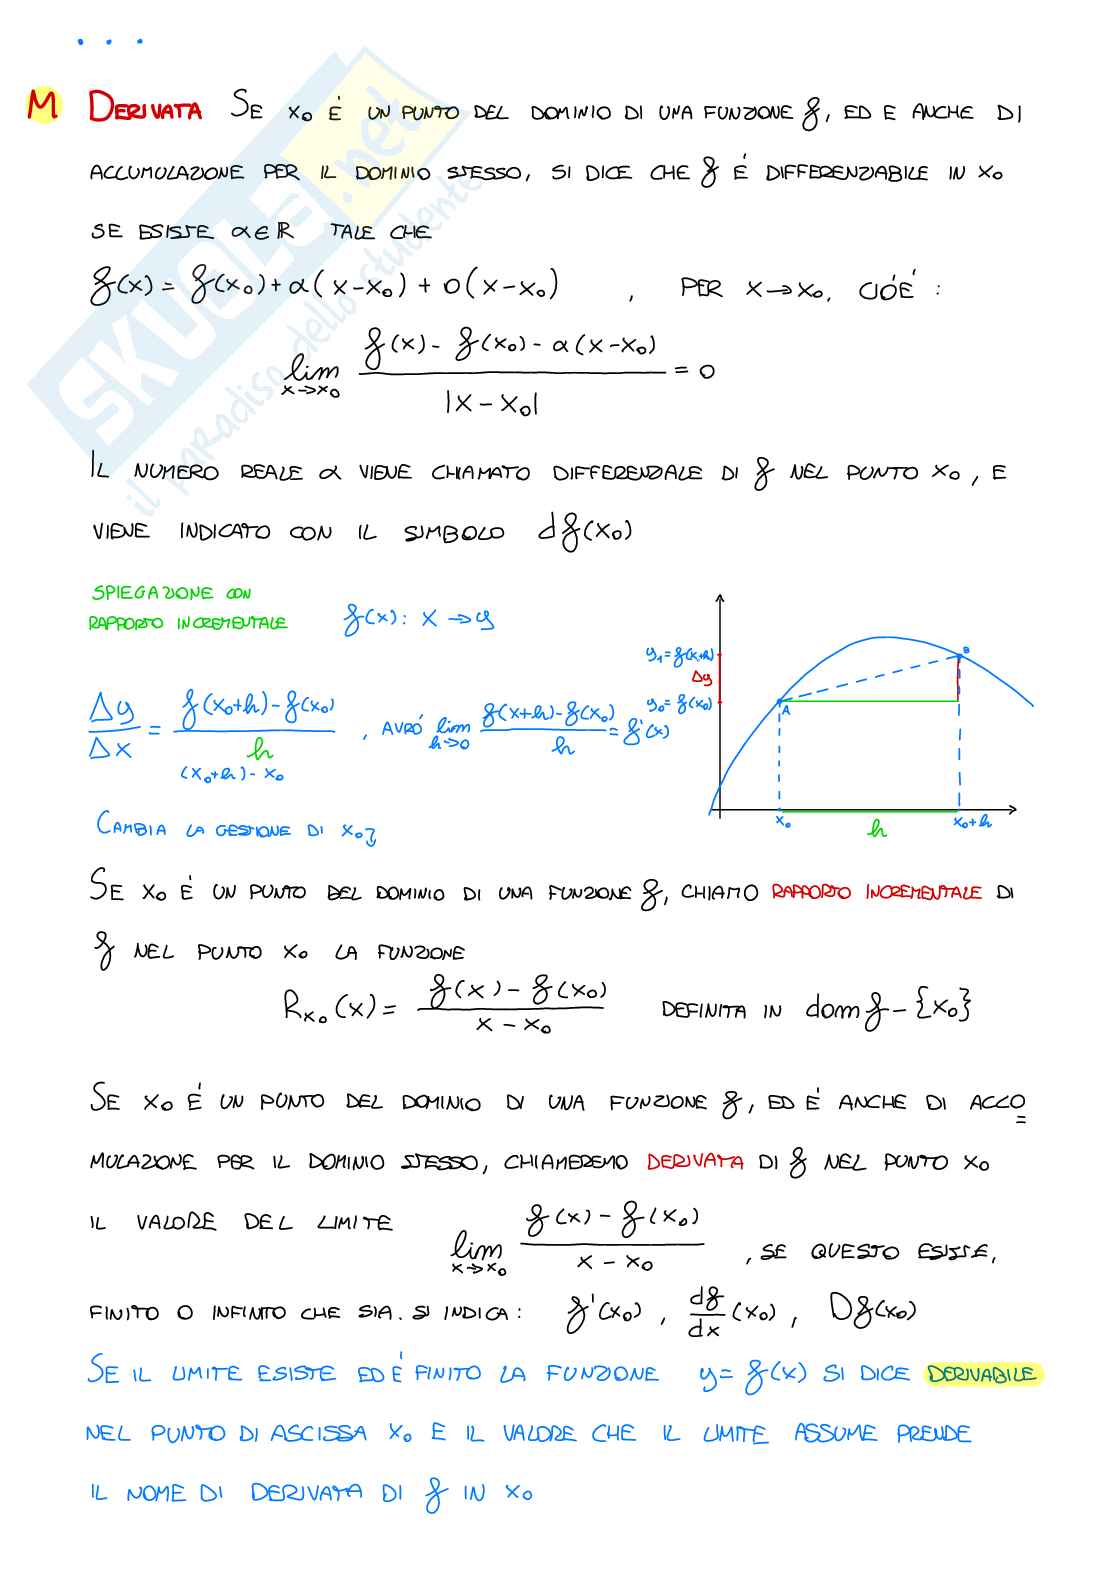 ...
M DERIVATA SE x₀ È UN PUNTO DEL DOMINIO DI UNA FUNZIONE f, ED E ANCHE DI
ACCUMULAZIONE PER IL DOMINIO STESSO, SI DICE CHE f È DIFFERENZIABILE IN x₀
SE ESISTE α∈ℝ TALE CHE
f(x) = f(x₀) + α(x-x₀) + o(x-x₀) , PER x→x₀, CIOÈ :
lim x→x₀ (f(x) - f(x₀) - α(x-x₀)) / |x-x₀| = 0
IL NUMERO REALE α VIENE CHIAMATO DIFFERENZIALE DI f NEL PUNTO x₀, E
VIENE INDICATO CON IL SIMBOLO df(x₀)
SPIEGAZIONE CON
RAPPORTO INCREMENTALE f(x): x → y
Δy/Δx = (f(x₀+h) - f(x₀)) / h , AVRÒ lim h→0 (f(x+h) - f(x₀)) / h = f'(x)
(x₀+h) - x₀
y₁ = f(x+h)
Δy
y₀ = f(x₀)
A
B
x₀
h
x₀+h
CAMBIA LA GESTIONE DI x₀
SE x₀ È UN PUNTO DEL DOMINIO DI UNA FUNZIONE f, CHIAMO RAPPORTO INCREMENTALE DI
f NEL PUNTO x₀ LA FUNZIONE
Rx₀(x) = (f(x) - f(x₀)) / (x - x₀) DEFINITA IN dom f - {x₀}
SE x₀ È UN PUNTO DEL DOMINIO DI UNA FUNZIONE f, ED È ANCHE DI ACCO=
MULAZIONE PER IL DOMINIO STESSO, CHIAMEREMO DERIVATA DI f NEL PUNTO x₀
IL VALORE DEL LIMITE lim x→x₀ (f(x) - f(x₀)) / (x - x₀) , SE QUESTO ESISTE,
FINITO O INFINITO CHE SIA. SI INDICA: f'(x₀) , df/dx (x₀) , Df(x₀)
SE IL LIMITE ESISTE ED È FINITO LA FUNZIONE y = f(x) SI DICE DERIVABILE
NEL PUNTO DI ASCISSA x₀ E IL VALORE CHE IL LIMITE ASSUME PRENDE
IL NOME DI DERIVATA DI f IN x₀
SKUOLA.net
il paradiso dello studente